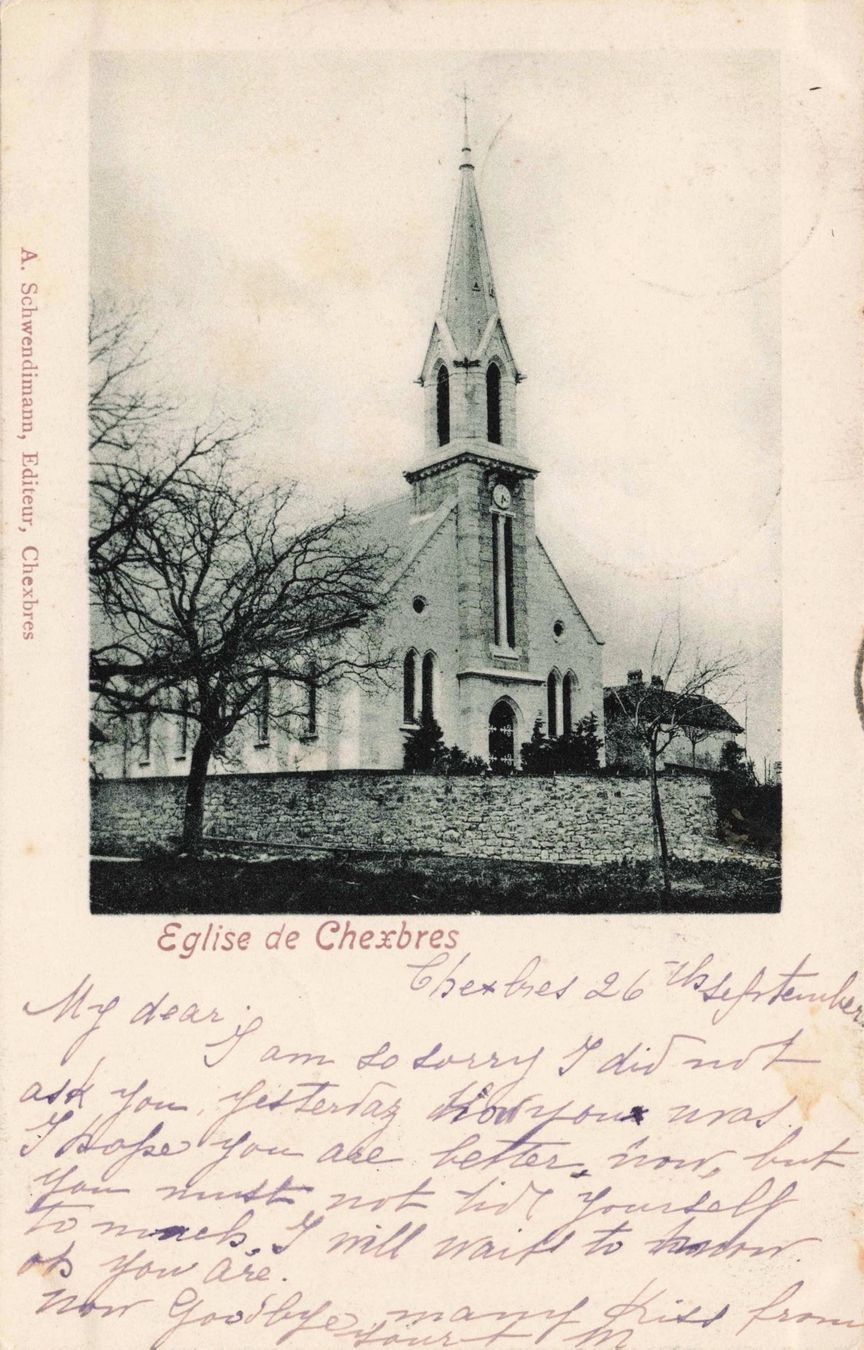 A. Schwendimann, Editeur, Chexbres
Eglise de Chexbres
Chexbres 26th September
My dear,
I am so sorry I did not
ask you, yesterday how you was.
I hope you are better, now, but
you must not yourself
to much, I will wait to know
you are.
now Goodbye many Kiss from
M